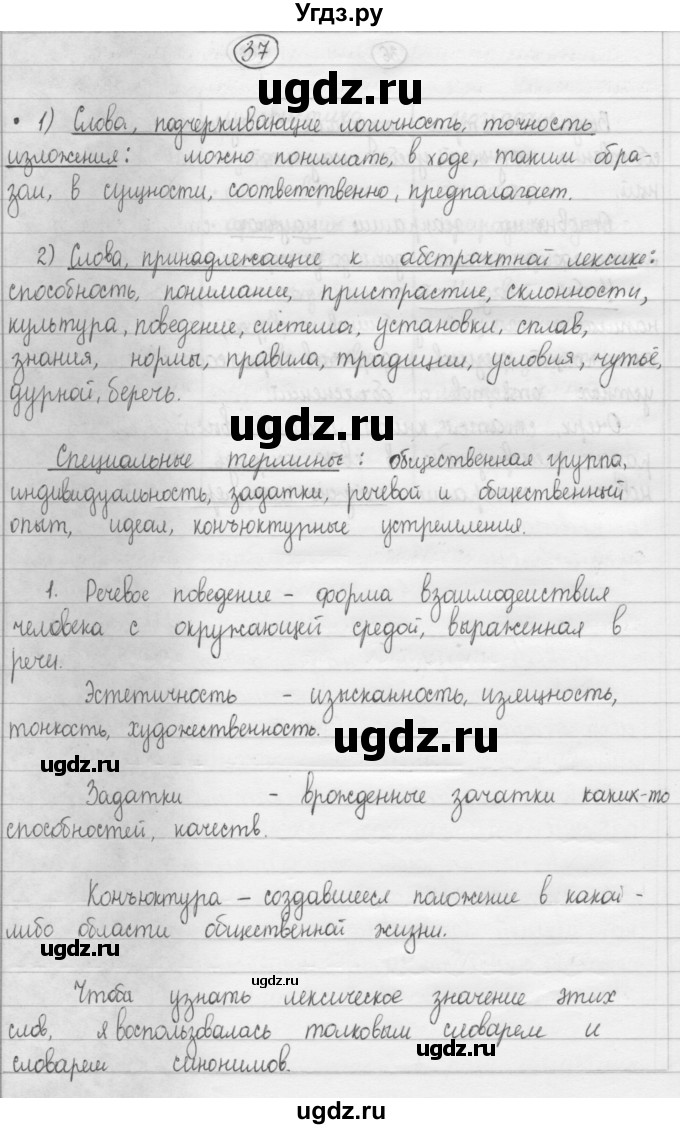 Угдз.ру
37
ugdz.ru
• 1) Слова, подчеркивающие логичность, точность
изложения: можно понимать, в ходе, таким обра-
зом, в сущности, соответственно, предполагает.
ugdz.ru
2) Слова, принадлежащие к абстрактной лексике:
способность, понимании, пристрастие, склонности,
культура, поведение, система, установки, сплав,
знания, нормы, правила, традиции, условия, чутьё,
дурной, беречь.
ugdz.ru
Специальные термины: общественная группа,
индивидуальность, задатки, речевой и общественный
опыт, идеал, конъюктурные устремления.
1. Речевое поведение - форма взаимодействия
человека с окружающей средой, выраженная в
речи.
Эстетичность - изысканность, излщность,
тонкость, художественность.
ugdz.ru
ugdz.ru
Задатки - врожденные зачатки каких-то
способностей, качеств.
Конъюктура - создавшееся положение в какой-
либо области общественной жизни.
ugdz.ru
ugdz.ru
Чтоба узнать лексическое значение этих
слов, я воспользовалась толковым словарем и
словарем синонимов.
ugdz.ru
ugdz.ru